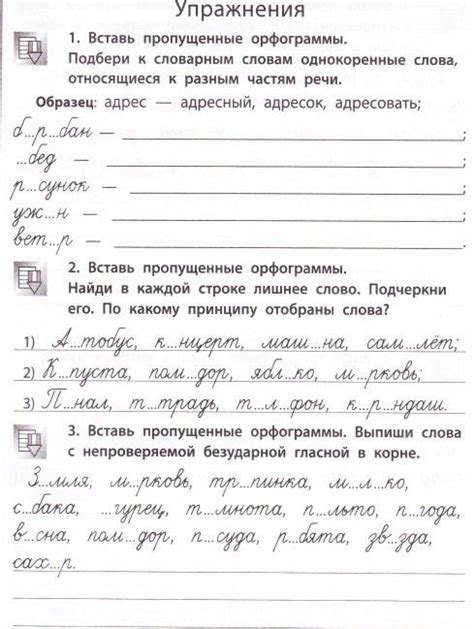 Упражнения
1. Вставь пропущенные орфограммы.
Подбери к словарным словам однокоренные слова,
относящиеся к разным частям речи.
Образец: адрес — адресный, адресок, адресовать;
б...р...бан — ;
...бед — ;
р...сунок — ;
уж...н — ;
вет...р — .
2. Вставь пропущенные орфограммы.
Найди в каждой строке лишнее слово. Подчеркни
его. По какому принципу отобраны слова?
1) А...тобус, к...нцерт, маш...на, сам...лёт;
2) К...пуста, пом...дор, ябл...ко, м...рковь;
3) П...нал, т...традь, т...л...фон, к...р...ндаш.
3. Вставь пропущенные орфограммы. Выпиши слова
с непроверяемой безударной гласной в корне.
З...мля, м...рковь, тр...пинка, м...л...ко,
с...бака, ...гурец, т...мнота, п...льто, п...года,
в...сна, пом...дор, п...суда, р...бята, зв...зда,
сах...р.